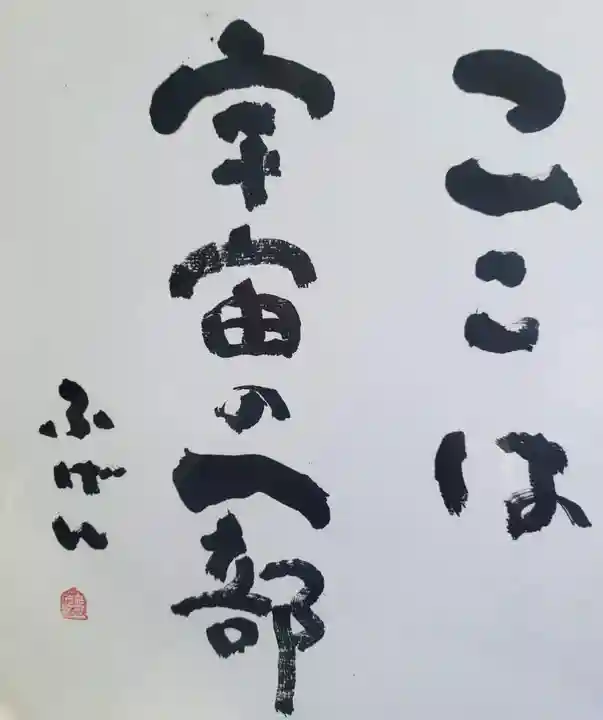 ここは
宇宙の一部
ふげん